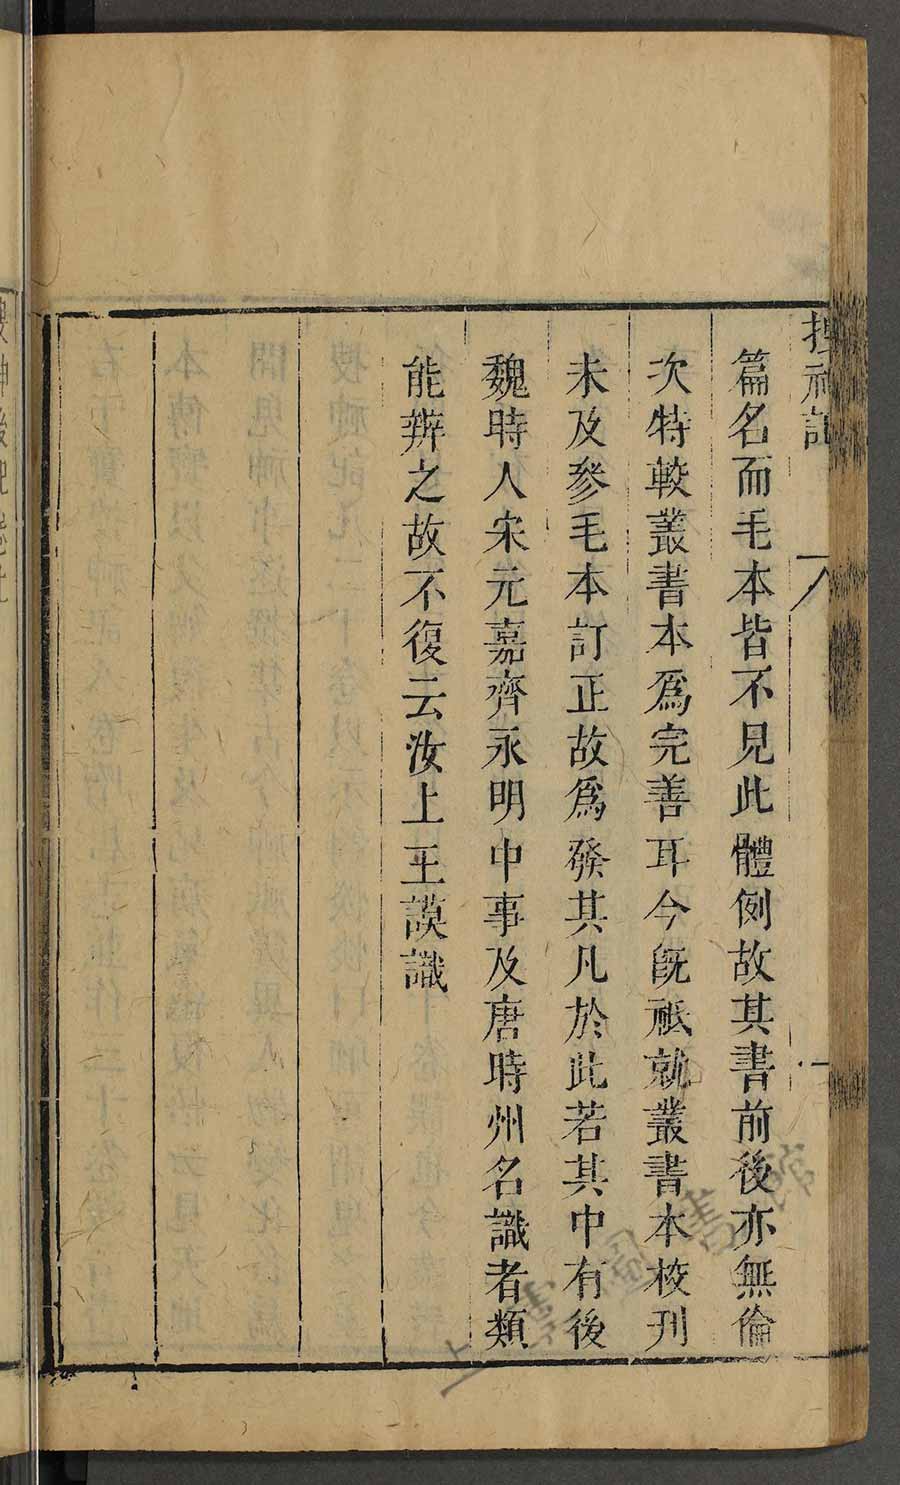 搜神記
篇名而毛本皆不見此體例故其書前後亦無倫
次特較叢書本爲完善耳今旣祇就叢書本校刊
未及參毛本訂正故爲發其凡於此若其中有後
魏時人宋元嘉齊永明中事及唐時州名識者類
能辨之故不復云汝上王謨識